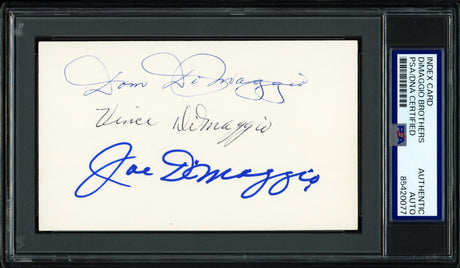 Dom DiMaggio
Vince DiMaggio
Joe DiMaggio
INDEX CARD
DIMAGGIO BROTHERS
PSA/DNA CERTIFIED
AUTHENTIC
AUTO
85420077
PSA